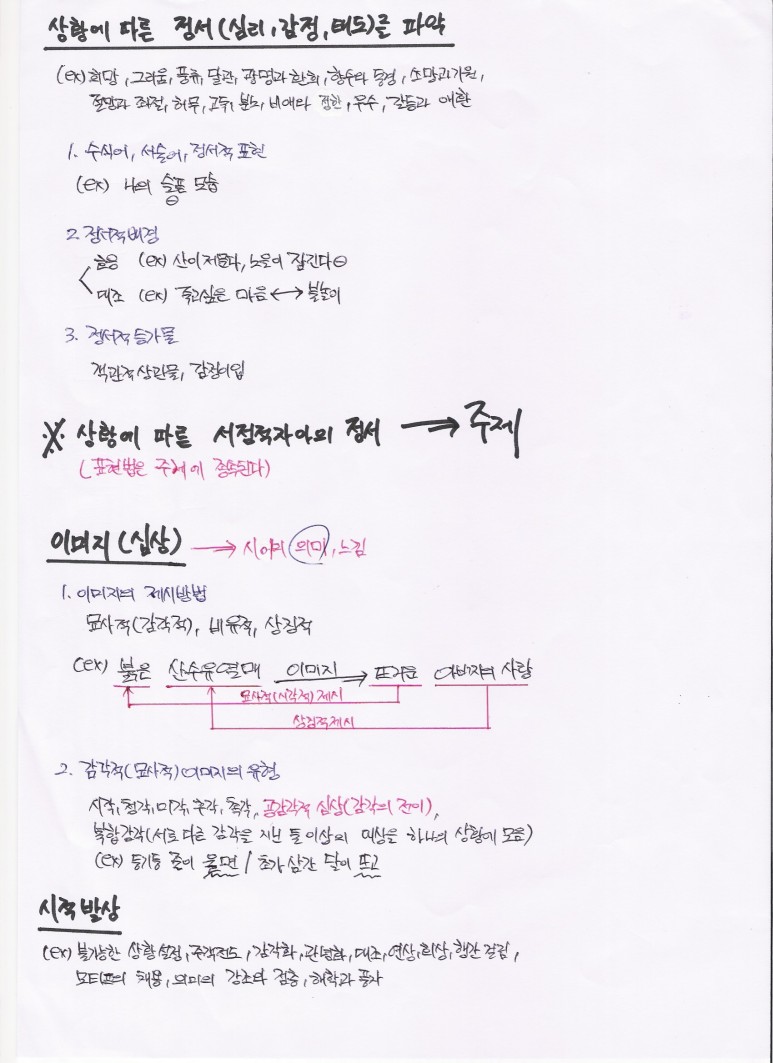 상황에 따른 정서(심리,감정,태도)를 파악
(ex) 희망, 그리움, 풍류, 달관, 광명과 환희, 향수와 동경, 소망과 기원,
절망과 좌절, 허무, 고독, 분노, 비애와 정한, 우수, 갈등과 애환
1. 수식어, 서술어, 정서적 표현
(ex) 나의 슬픈 모습
⊖
2. 정서적 배경
조응 (ex) 산이 저문다, 노을이 잠긴다 ⊖
대조 (ex) 죽고싶은 마음 ↔ 불놀이
3. 정서적 등가물
객관적 상관물, 감정이입
※ 상황에 따른 서정적자아의 정서 → 주제
(표현법은 주제에 종속된다)
이미지(심상) → 시어의 의미, 느낌
1. 이미지의 제시방법
묘사적(감각적), 비유적, 상징적
(ex) 붉은 산수유 열매 이미지 → 뜨거운 아버지의 사랑
묘사적(시각적) 제시
상징적 제시
2. 감각적(묘사적) 이미지의 유형
시각, 청각, 미각, 후각, 촉각, 공감각적 심상(감각의 전이),
복합감각(서로 다른 감각을 지닌 둘 이상의 대상을 하나의 상황에 모음)
(ex) 둥기둥 줄이 울면 / 초가 삼간 달이 뜨고
시적 발상
(ex) 불가능한 상황설정, 주객전도, 감각화, 관념화, 대조, 연상, 회상, 행간 걸림,
모티프의 채용, 의미의 강조와 점층, 해학과 풍자